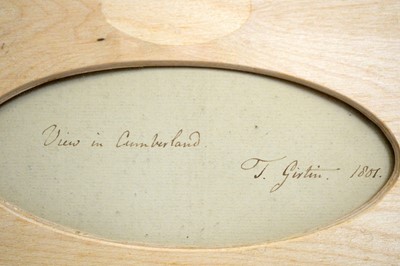 View in Cumberland.
T. Girtin. 1801.